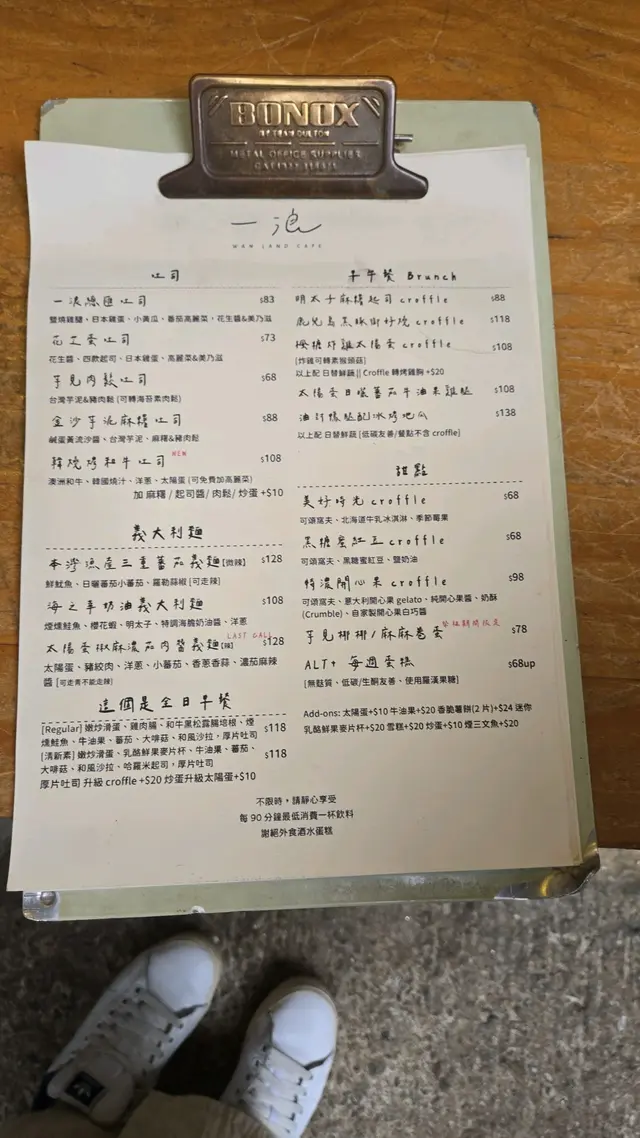 "BONOX"
METAL OFFICE SUPPLIES
一浪
WAN LAND CAFE
吐司
一浪隱匿吐司 $83
鹽燒雞腿、日本雞蛋、小黃瓜、番茄高麗菜，花生醬&美乃滋
花芝蛋吐司 $73
花生醬、四款起司、日本雞蛋、高麗菜&美乃滋
芋見肉鬆吐司 $68
台灣芋泥&豬肉鬆 (可轉海苔素肉鬆)
金沙芋泥麻糬吐司 $88
鹹蛋黃流沙醬、台灣芋泥、麻糬&豬肉鬆
韓燒烤和牛吐司 NEW $108
澳洲和牛、韓國燒汁、洋蔥、太陽蛋 (可免費加高麗菜)
加 麻糬 / 起司醬/ 肉鬆/ 炒蛋 +$10
義大利麵
本灣漁產三重蕃茄義麵 [微辣] $128
鮮魷魚、日曬蕃茄小蕃茄、羅勒蒜椒 [可走辣]
海之幸奶油義大利麵 $108
煙燻鮭魚、櫻花蝦、明太子、特調海膽奶油醬、洋蔥
LAST CALL
太陽蛋椒麻濃茄肉醬義麵 [辣] $128
太陽蛋、豬絞肉、洋蔥、小蕃茄、香蔥香蒜、濃茄麻辣
醬 [可走青不能走辣]
這個是全日早餐
[Regular] 嫩炒滑蛋、雞肉腸、和牛黑松露腸培根、煙
燻鮭魚、牛油果、蕃茄、大啡菇、和風沙拉，厚片吐司 $118
[清新素] 嫩炒滑蛋、乳酪鮮果麥片杯、牛油果、蕃茄、
大啡菇、和風沙拉、哈羅米起司，厚片吐司 $118
厚片吐司 升級 croffle +$20 炒蛋升級太陽蛋+$10
早午餐 Brunch
明太子麻糬起司 croffle $88
鹿兒島黑豚御好燒 croffle $118
楓糖炸雞太陽蛋 croffle $108
[炸雞可轉素猴頭菇]
以上配 日替鮮蔬 || Croffle 轉烤雞胸 +$20
太陽蛋日曬蕃茄牛油果雞腿 $108
油封橡腿配冰烤地瓜 $138
以上配 日替鮮蔬 [低碳友善/餐點不含 croffle]
甜點
美好時光 croffle $68
可頌窩夫、北海道牛乳冰淇淋、季節莓果
黑糖蜜紅豆 croffle $68
可頌窩夫、黑糖蜜紅豆、鹽奶油
特濃開心果 croffle $98
可頌窩夫、意大利開心果 gelato、純開心果醬、奶酥
(Crumble)、自家製開心果白巧醬
芋見椰椰/麻麻卷蛋 $78
ALT+ 每週蛋糕 $68up
[無麩質、低碳/生酮友善、使用羅漢果糖]
Add-ons: 太陽蛋+$10 牛油果+$20 香脆薯餅(2 片)+$24 迷你
乳酪鮮果麥片杯+$20 雪糕+$20 炒蛋+$10 煙三文魚+$20
不限時，請靜心享受
每 90 分鐘最低消費一杯飲料
謝絕外食酒水蛋糕